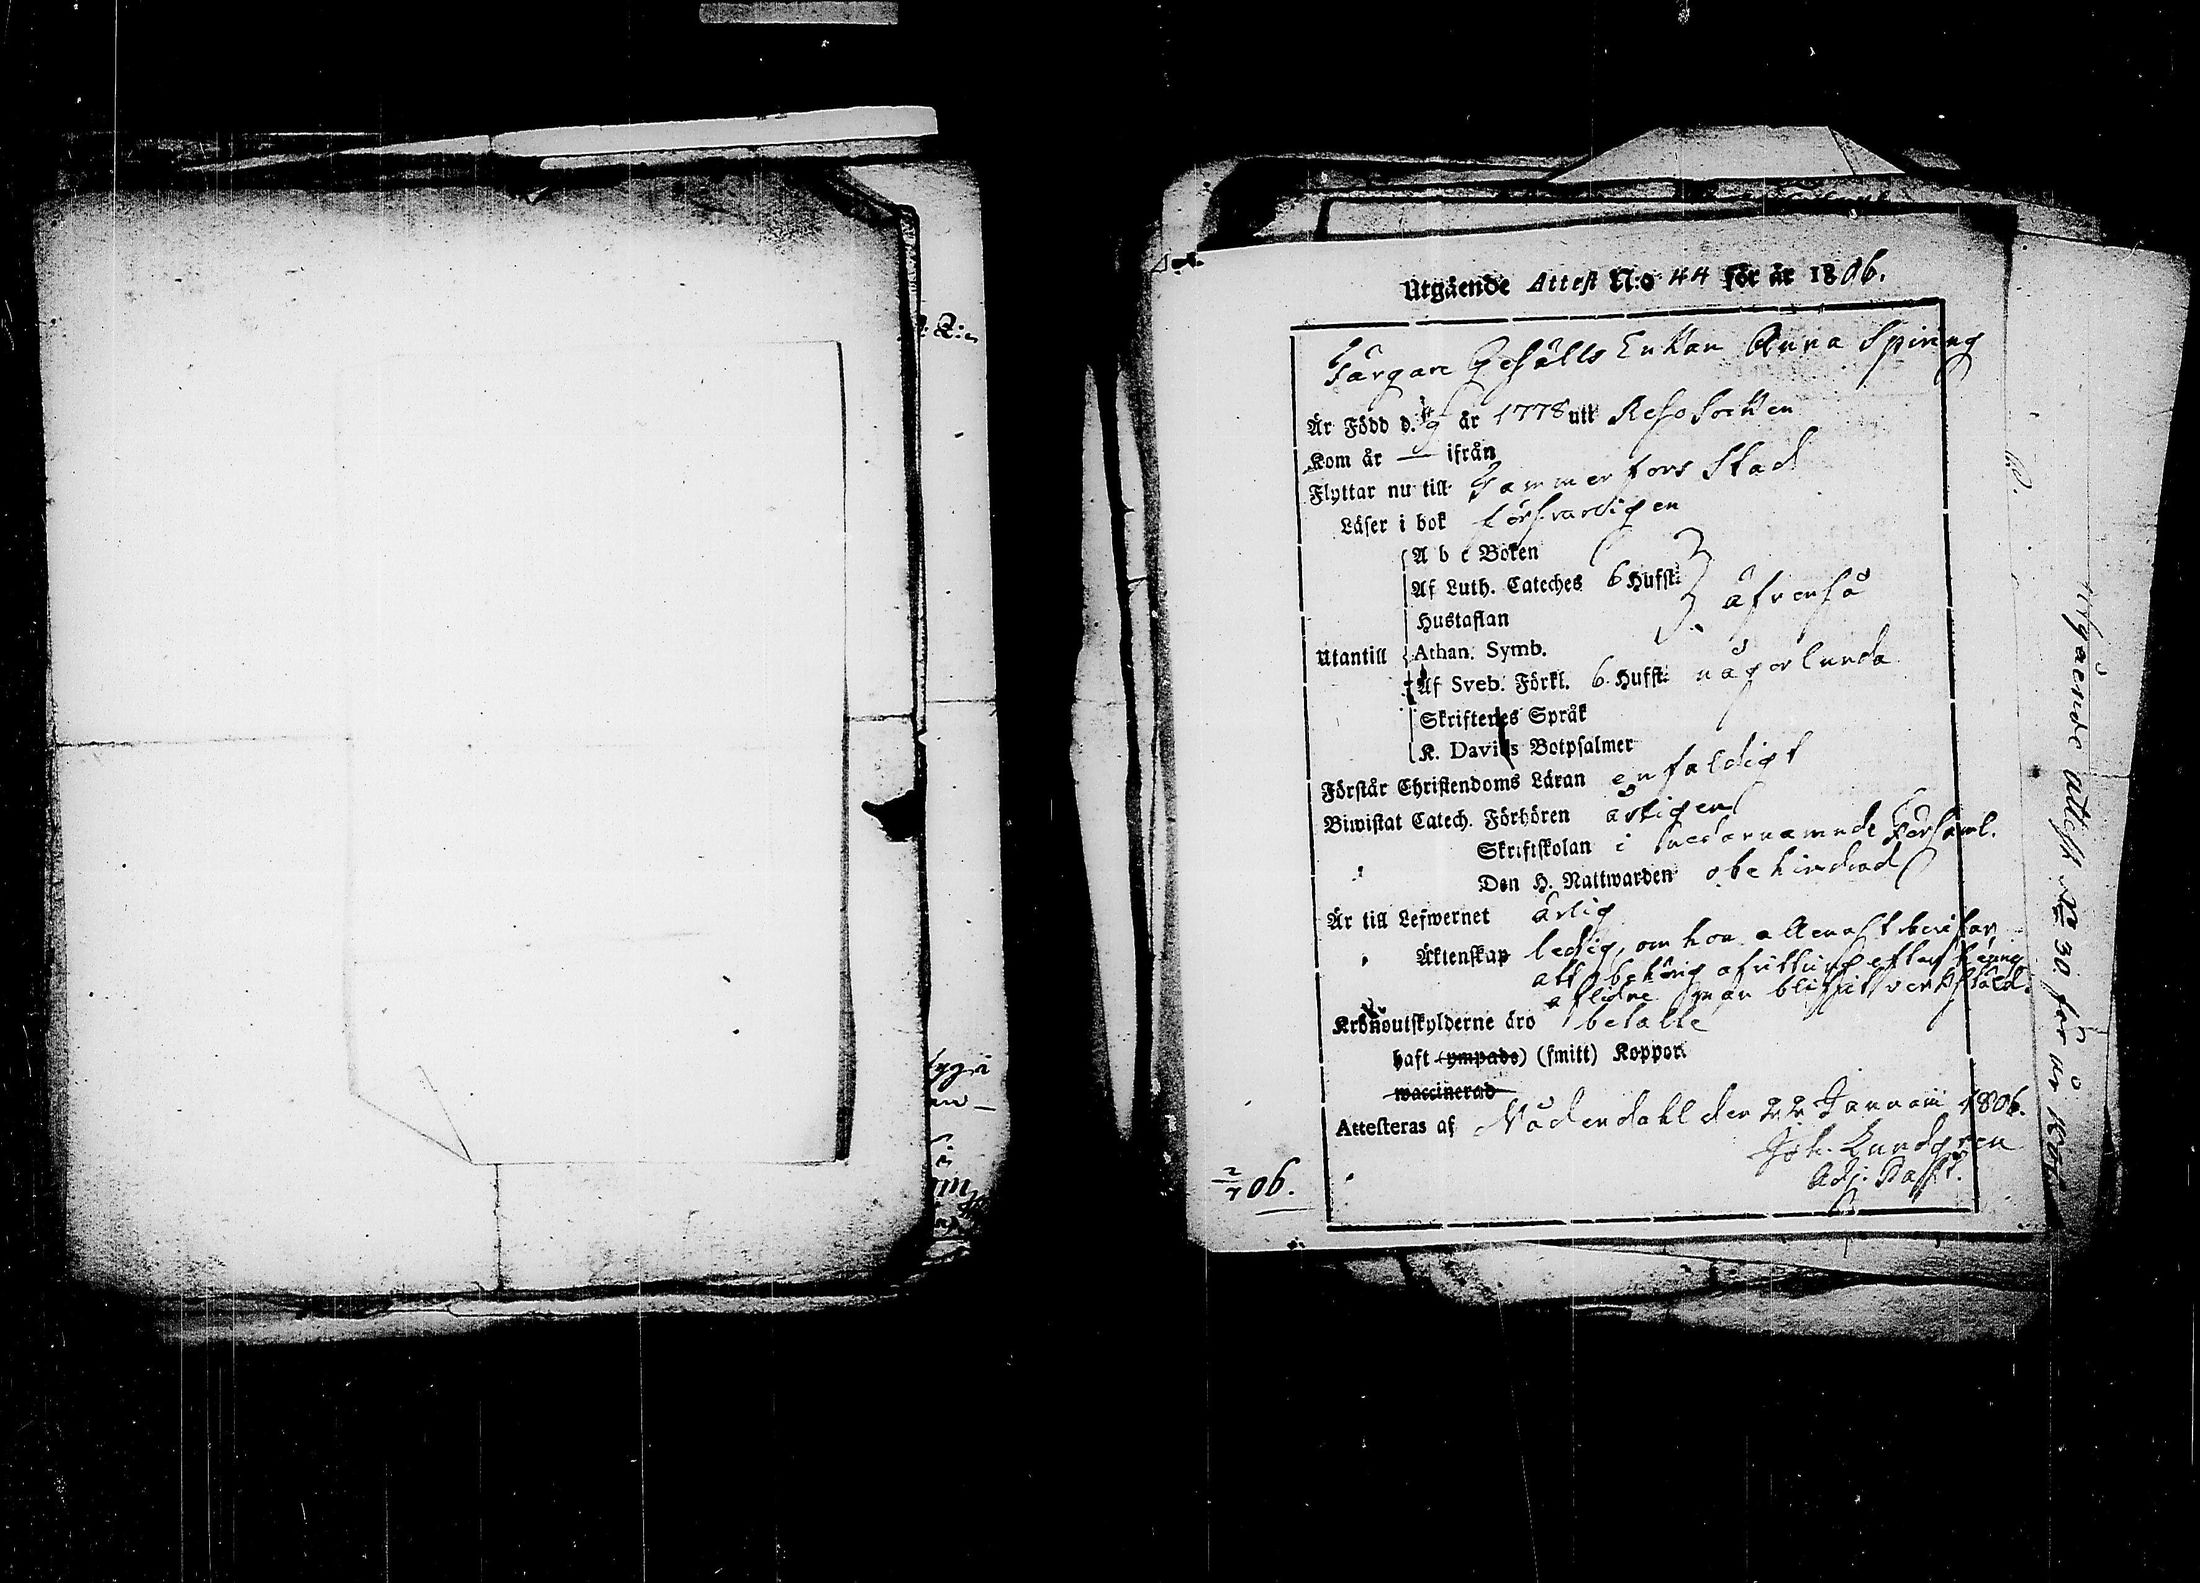 Utgående Attest N:o 44 för år 1806.
Färgare Gesälls Enkan Anna Spiring
Är Född d. år 1778 utt Reso Sockken
Kom år — ifrån
Flyttar nu till Tammerfors Stad
Läser i bok försvarligen
A b c Boken
Af Luth. Cateches 6 Hufst:
Hustaflan
äfvenså
Utantill Athan. Symb.
Af Sveb. Förkl. 6 Hufst: någorlunda
Skriftenes Språk
K. Davids Botpsalmer
Förstår Christendoms Läran enfaldigt
Biwistat Catech. Förhören årligen
Skriftskolan i nedannämnde Församl.
Den H. Nattwarden obehindrad
Är till Lefwernet ärlig
Äktenskap ledig, om hon allenast bevisar,
att behörig afvittring efter henne
aflidne man blifvit verkstäld.
Kronoutskylderne äro betalte
haft (ympade) (smitt) Koppor
waccinerad
Attesteras af Nådendahl den 22 Januarii 1806.
Joh. Lundgren
Adj. Past.
2/7 06.
utgående Attest No 30. för år 1806